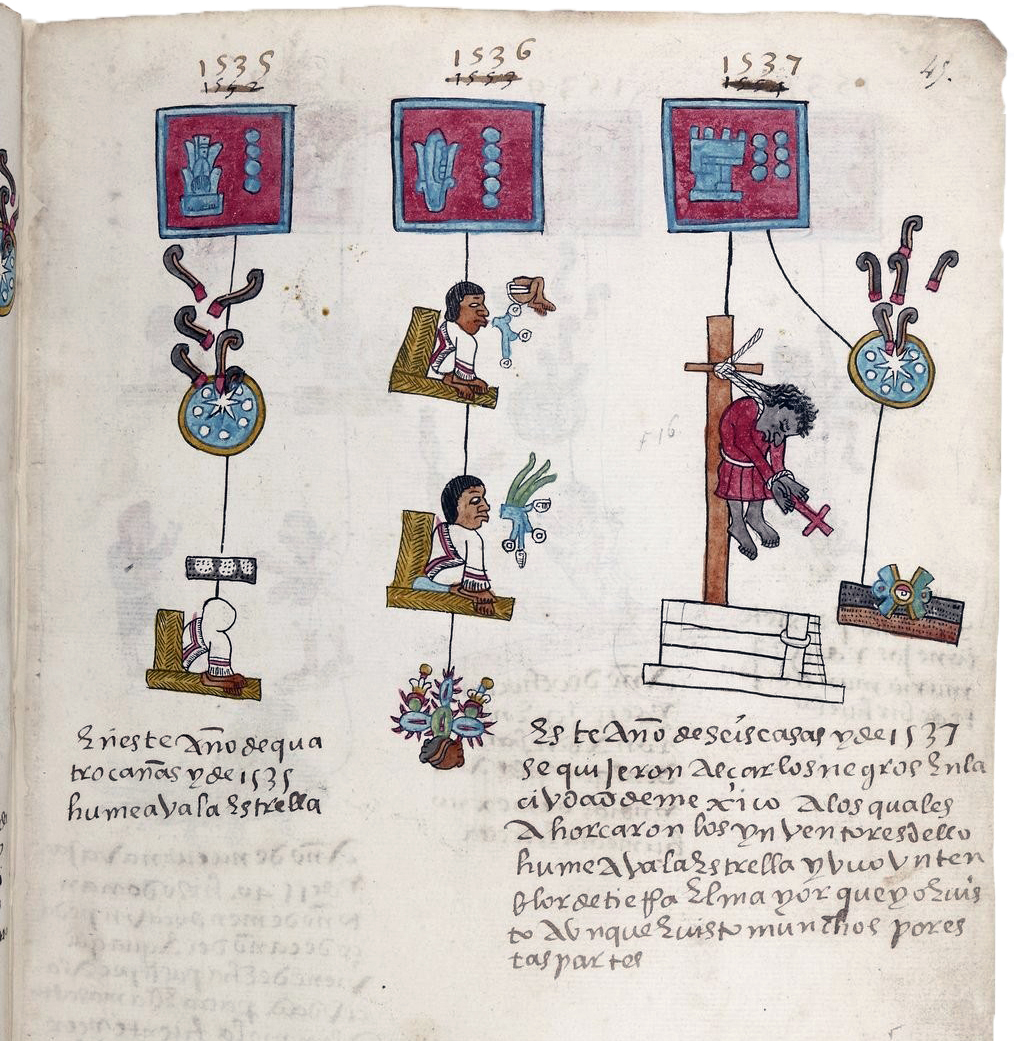 1535
1536
1537
45.
Eneste Año de qua
tro cañas y de 1535
humeava la Estrella
Este Año de seis casas y de 1537
se quijeron Alcar los negros En la
civdad de mexico A los quales
Ahorcaron los ynventores dello
humeAva la Estrella y vuo vn ten
blor de tierra El mayor que yo E uis
to Avnque E uisto munchos por es
tas partes